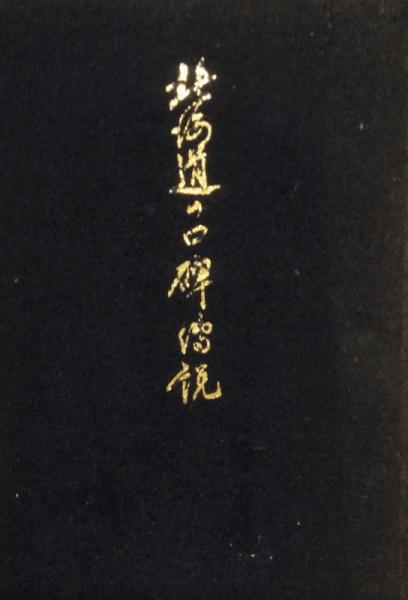 北海道の口碑傳説